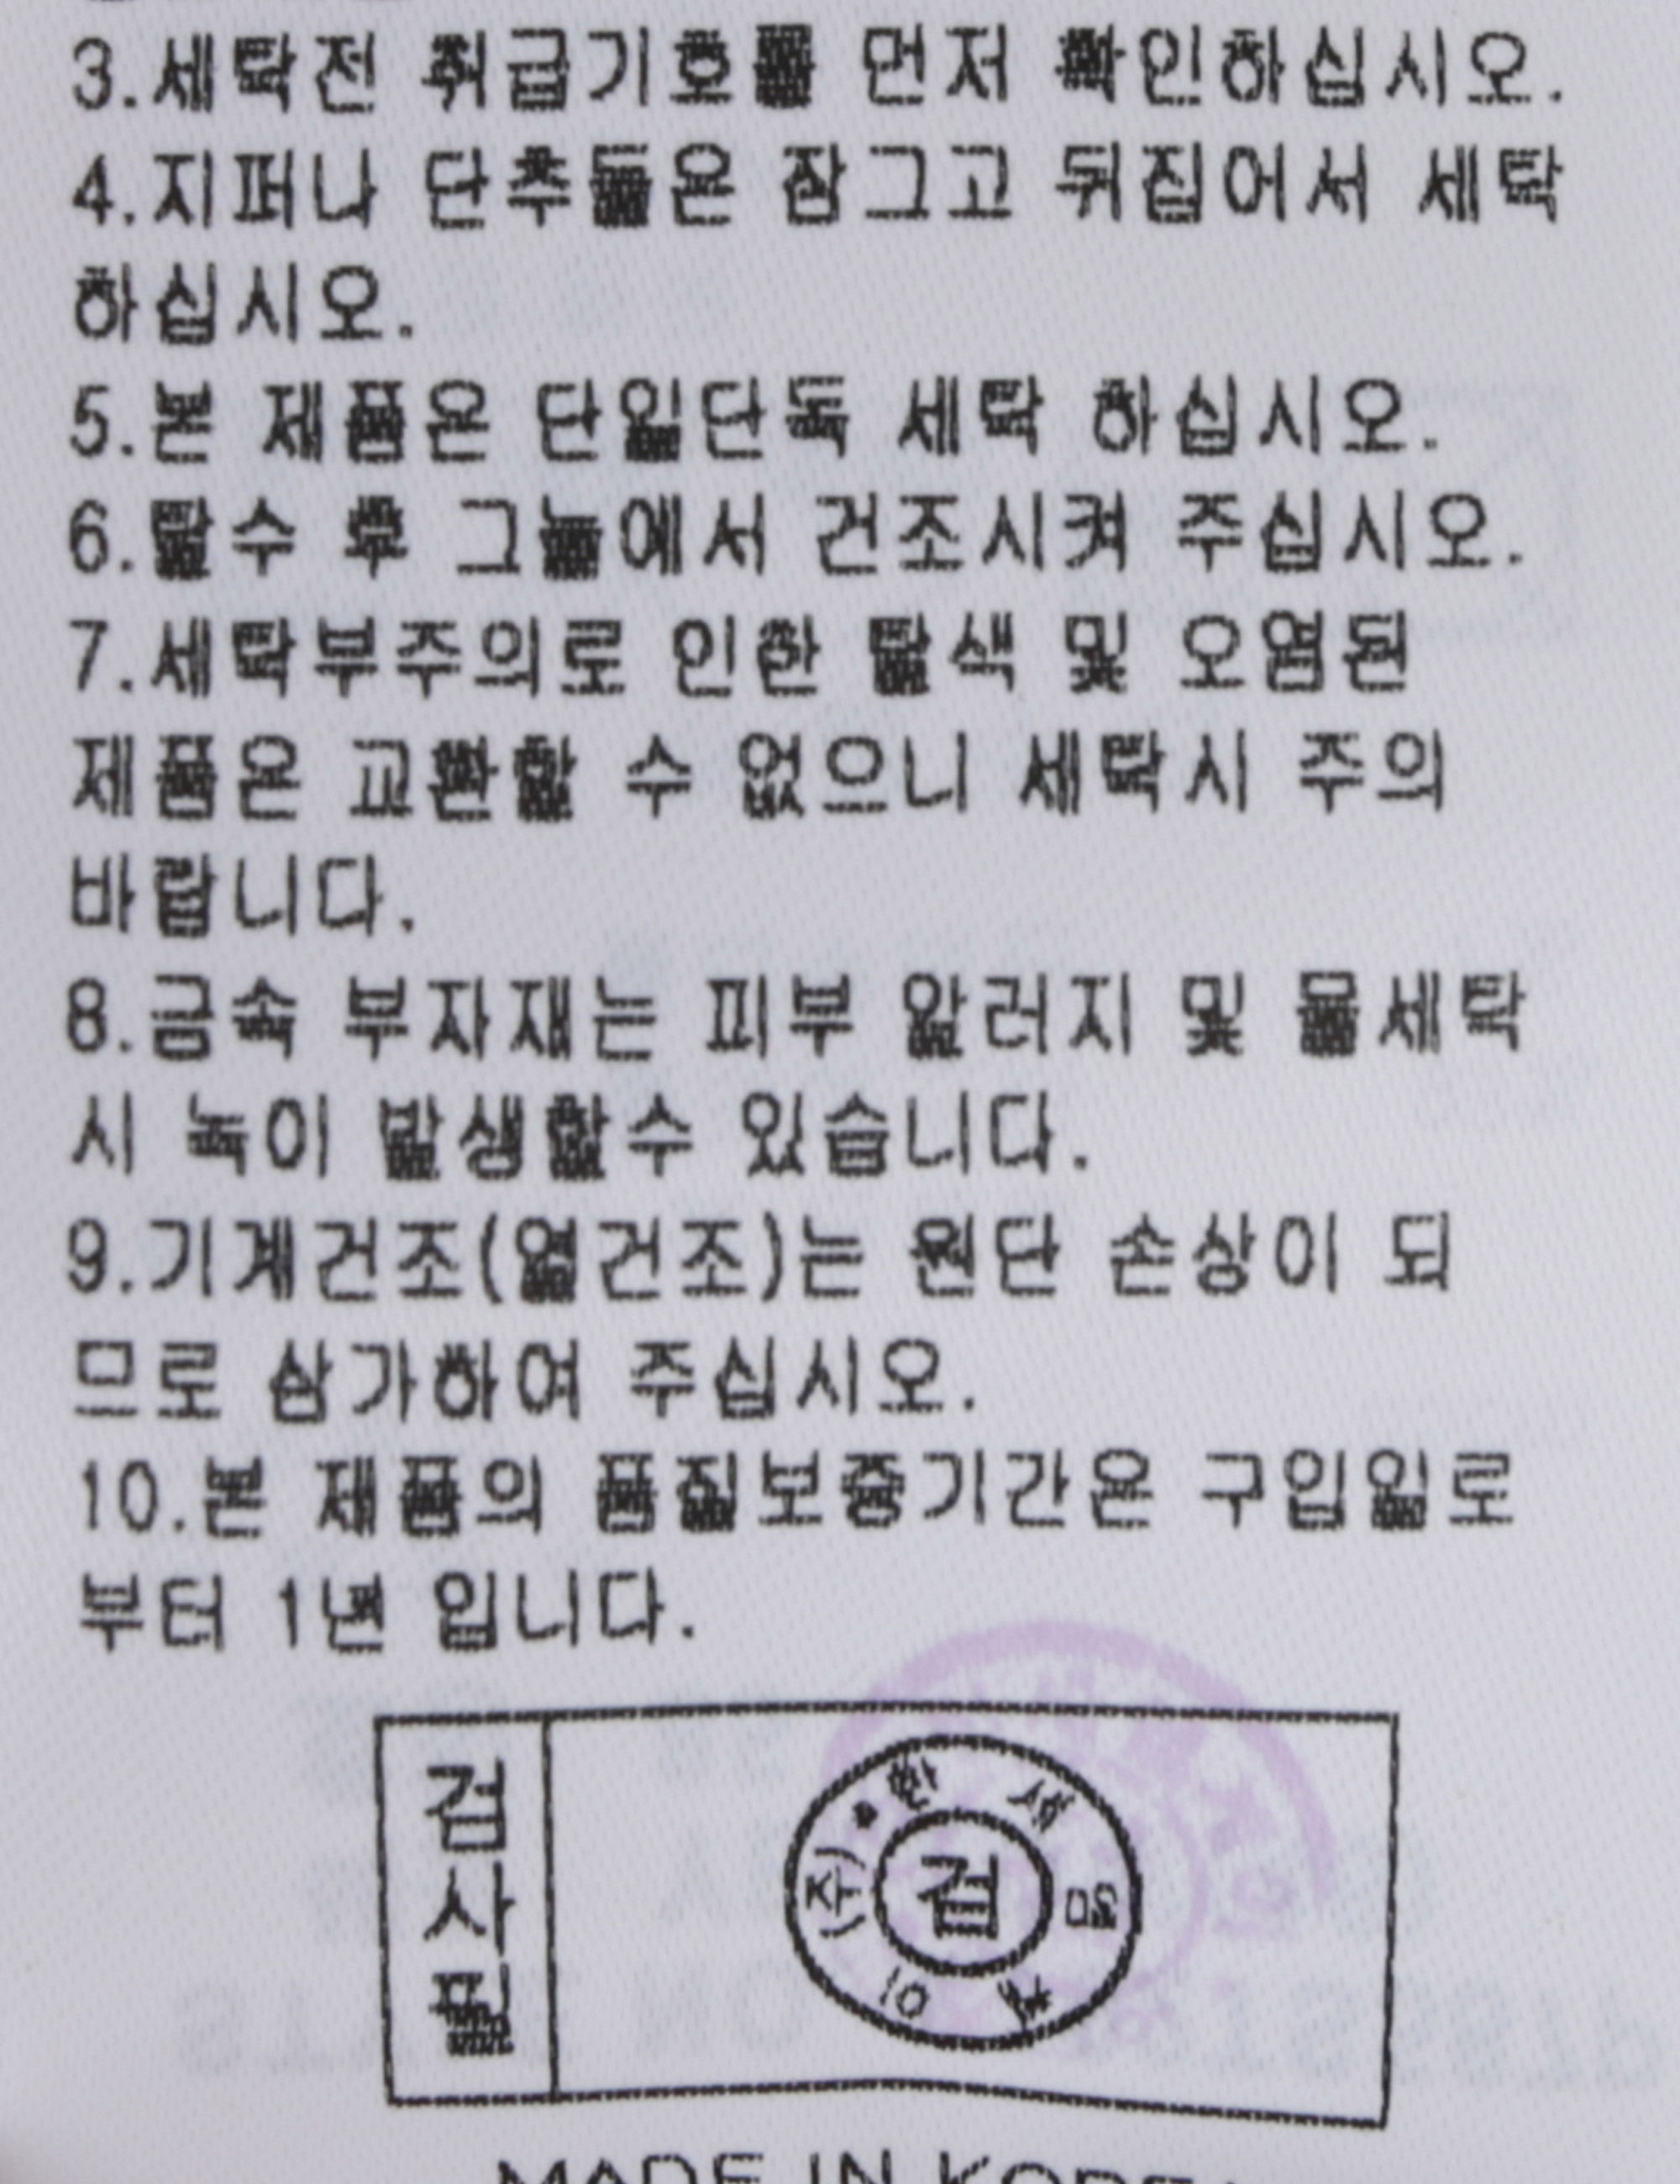 3.세탁전 취급기호를 먼저 확인하십시오.
4.지퍼나 단추들은 잠그고 뒤집어서 세탁
하십시오.
5.본 제품은 단일단독 세탁 하십시오.
6.탈수 후 그늘에서 건조시켜 주십시오.
7.세탁부주의로 인한 탈색 및 오염된
제품은 교환할 수 없으니 세탁시 주의
바랍니다.
8.금속 부자재는 피부 알러지 및 물세탁
시 녹이 발생할수 있습니다.
9.기계건조(열건조)는 원단 손상이 되
므로 삼가하여 주십시오.
10.본 제품의 품질보증기간은 구입일로
부터 1년 입니다.
검사필
(주)한세엠
검
MADE IN KOREA